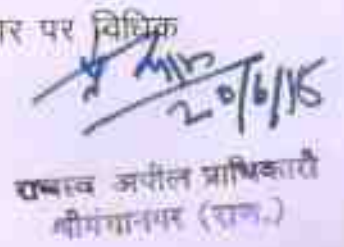 र पर विधिक
20/6/15
राजस्व अपील प्राधिकारी
श्रीगंगानगर (राज.)